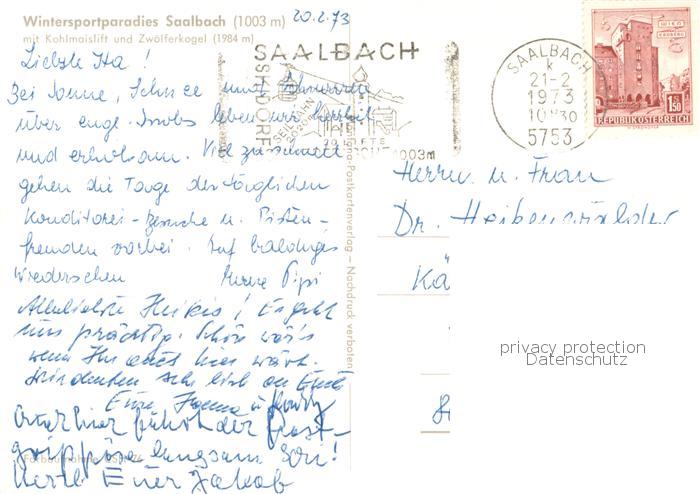 Wintersportparadies Saalbach (1003 m)
mit Kohlmaislift und Zwölferkogel (1984 m)
20.2.73
Liebste Ita !
Bei Sonne, Schnee und
über enge leben wir herrlich
und erholsam. Viel zu schnell
gehen die Tage der täglichen
Konditorei - Besuche u. Pisten-
freuden vorbei. Auf baldiges
Wiedersehen Pipi
Allerliebste Heikis! Es geht
uns prächtig. Schön wär's
wenn Ihr auch hier wärt.
Wir denken sehr lieb an Euch
Eure Hanna u.
Auch hier führt der
langsam Ski!
Herzl. Euer Jakob
SAALBACH
SKIDORF
SEILBAHN
LIFTE
1003m
SAALBACH
k
21-2
1973
10 30
5753
WIEN
ERDBERG
1.50
REPUBLIK ÖSTERREICH
Postkartenverlag – Nachdruck verboten
Herrn u. Frau
Dr.
Kä
privacy protection
Datenschutz